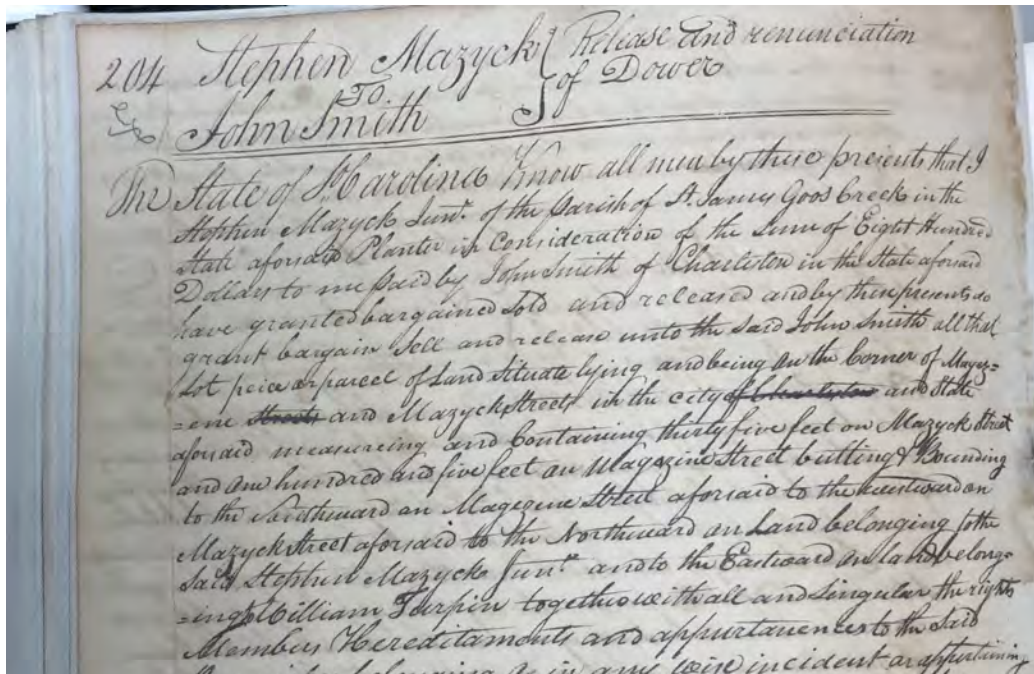 204 Stephen Mazyck { Release and renunciation
To of Dower
Ex John Smith
The State of So Carolina Know all men by these presents that I
Stephen Mazyck Junr. of the Parish of St. James Goos Creek in the
State aforsaid Planter in Consideration of the Sum of Eight Hundred
Dollars to me paid by John Smith of Charleston in the State aforsaid
have granted bargained Sold and released and by these presents do
grant bargain Sell and release unto the Said John Smith all that
Lot peice or parcel of Land Situate lying and being on the Corner of Magez=
=ene Streets and Mazyck Streets in the city of Charleston and State
aforsaid measureing and Containing thirty five feet on Mazyck Street
and One hundred and five feet on Magezine Street butting & Bounding
to the Southward on Magezene Street aforsaid to the westward on
Mazyck Street aforsaid to the Northward on Land belonging to the
Said Stephen Mazyck Junr and to the Eastward on land belong=
=ing to William Turpin together with all and Singular the rights
Members Hereditaments and appurtanences to the Said
belonging or in any wise incident or appurtaining